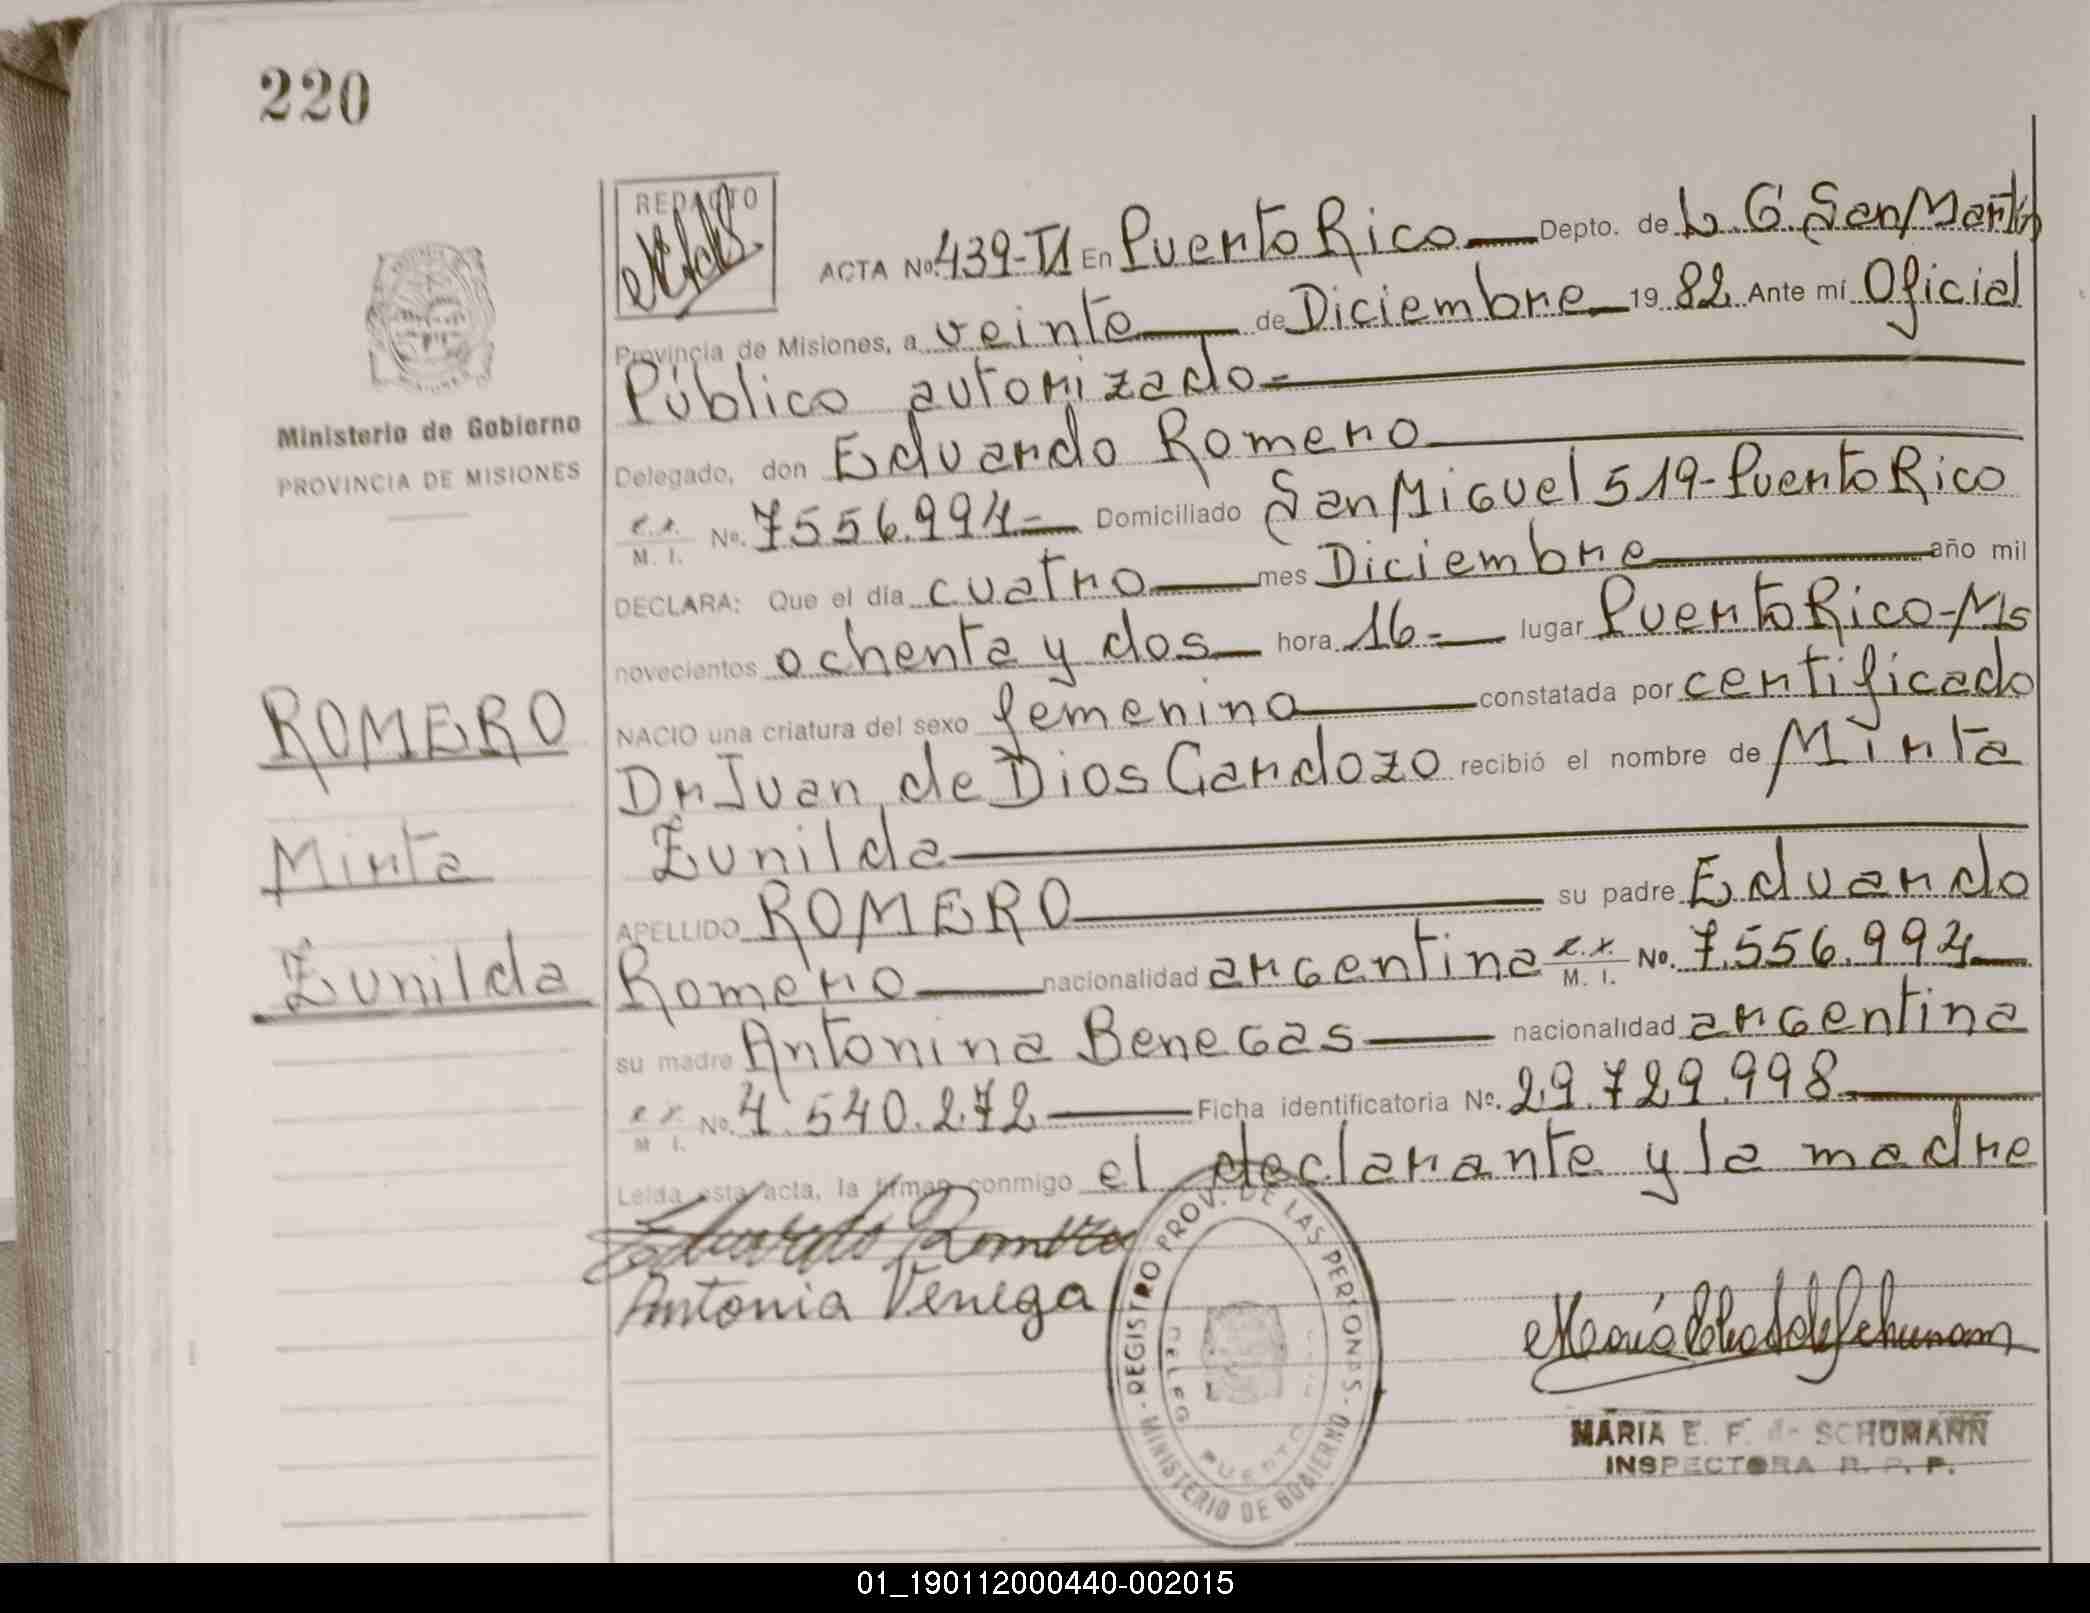 220
REDACTO
ACTA No. 439-TI En Puerto Rico Depto. de L. G. San Martin
Provincia de Misiones, a veinte de Diciembre 19 82 Ante mí Oficial
Público autorizado=
Ministerio de Gobierno
PROVINCIA DE MISIONES
Delegado, don Eduardo Romero
M. I. No. 7556.994= Domiciliado San Miguel 519-Puerto Rico
DECLARA: Que el día cuatro mes Diciembre año mil
novecientos ochenta y dos hora 16= lugar Puerto Rico-Ms
NACIO una criatura del sexo femenino constatada por certificado
Dr Juan de Dios Cardozo recibió el nombre de Mirta
Zunilda
ROMERO
Mirta
Zunilda
APELLIDO ROMERO su padre Eduardo
Romero nacionalidad argentina M. I. No. 7.556.994
su madre Antonina Benegas nacionalidad argentina
M I. No. 4.540.272 Ficha identificatoria No. 29.729.998
Leída esta acta, la firman conmigo el declarante y la madre
Eduardo Romero
Antonia Venega
REGISTRO PROV. DE LAS PERSONAS - MINISTERIO DE GOBIERNO -
DELEG PUERTO
MARIA E. F. de SCHUMANN
INSPECTORA R. P. P.
01_190112000440-002015